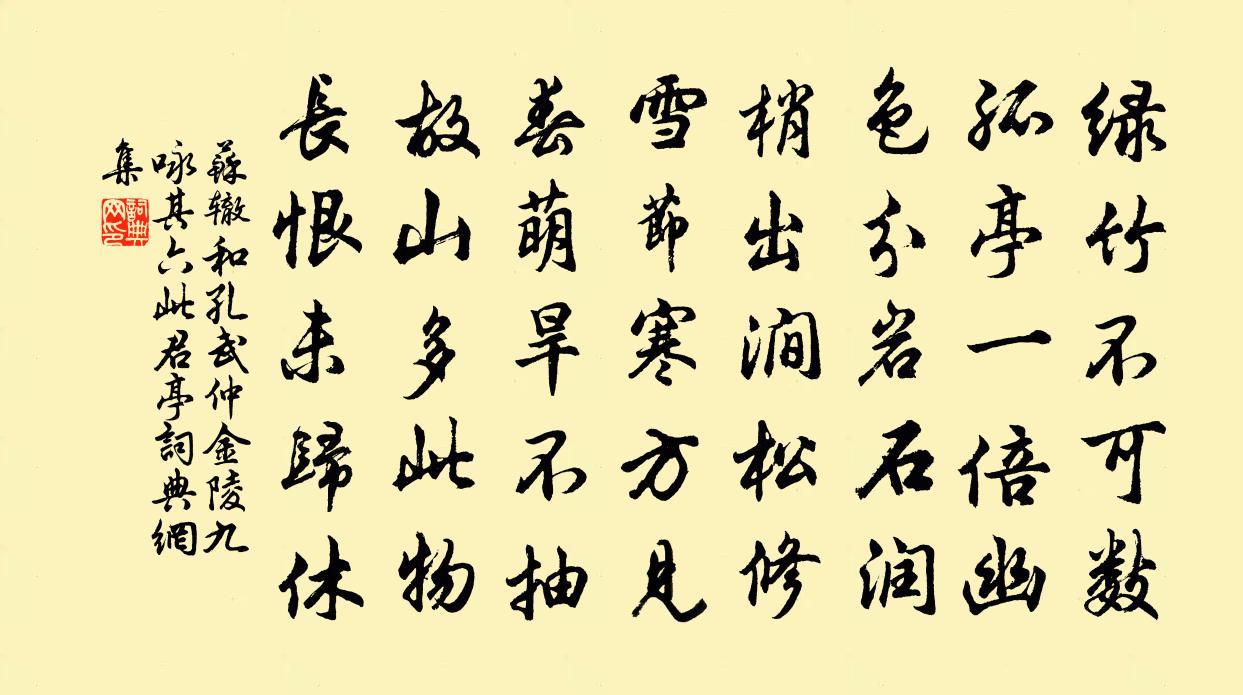 绿竹不可数
孤亭一倍幽
色分岩石润
梢出涧松修
雪節寒方见
春萌旱不抽
故山多此物
長恨未歸休
蘇辙和孔武仲金陵九
咏其六此君亭詞典網
集
詞典网印